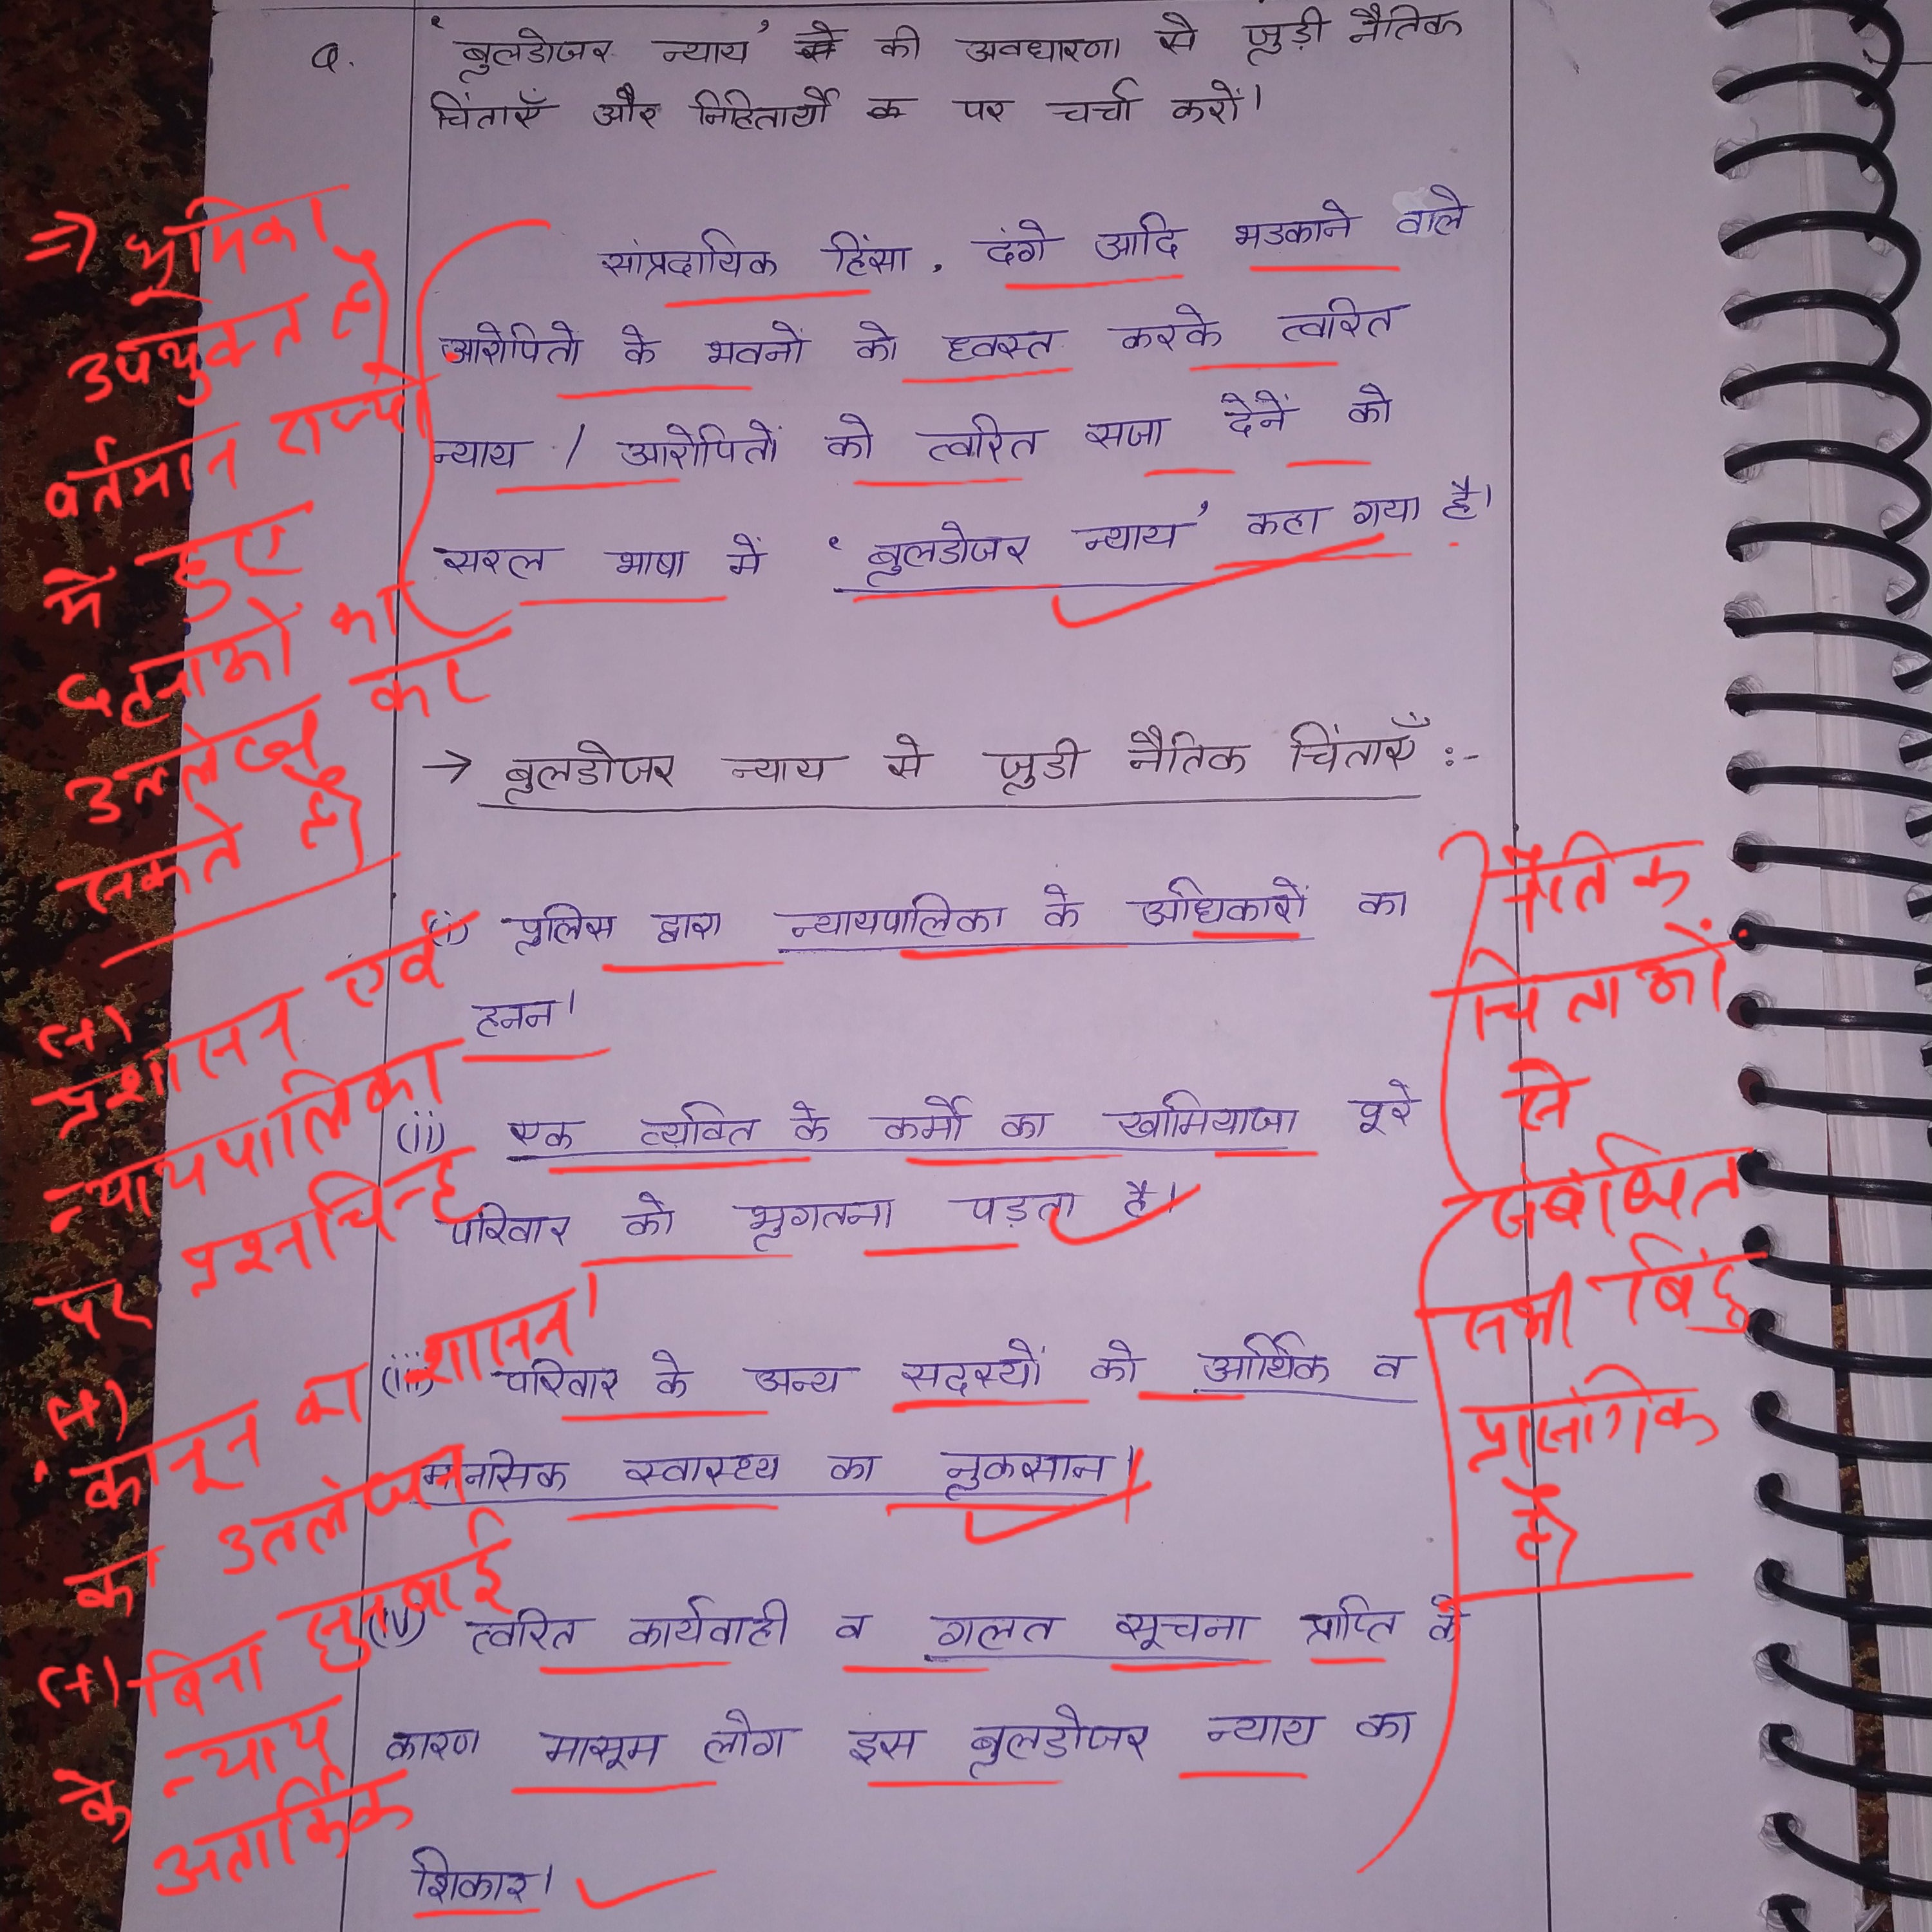 Q. 'बुलडोजर न्याय' की अवधारणा से जुड़ी नैतिक
चिंताएँ और निहितार्थों पर चर्चा करों।
सांप्रदायिक हिंसा, दंगे आदि भडकाने वाले
आरोपितो के भवनों को ध्वस्त करके त्वरित
न्याय / आरोपितों को त्वरित सजा देनें को
सरल भाषा में 'बुलडोजर न्याय' कहा गया है।
=) भूमिका
उपयुक्त है
वर्तमान राज्यों
में हुए
घटनाओं का
उल्लेख कर
सकते हैं
→ बुलडोजर न्याय से जुडी नैतिक चिंताएँ :-
(i) पुलिस द्वारा न्यायपालिका के अधिकारों का
हनन।
(ii) एक व्यक्ति के कर्मो का खामियाजा पूरे
परिवार को भुगतना पड़ता है।
(iii) परिवार के अन्य सदस्यों को आर्थिक व
मानसिक स्वास्थ्य का नुकसान।
(iv) त्वरित कार्यवाही व गलत सूचना प्राप्ति के
कारण मासूम लोग इस बुलडोजर न्याय का
शिकार।
(+)
प्रशासन एवं
न्यायपालिका
पर प्रश्नचिन्ह
(+)
'कानून का शासन'
का उल्लंघन
(+) बिना सुनवाई
के न्याय
अतार्किक
नैतिक
चिंताओं
से
संबंधित
सभी बिंदु
प्रासंगिक
है